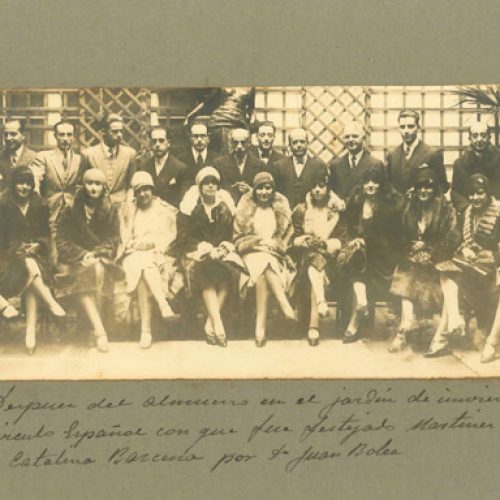 Despues del almuerzo en el jardín de invier
irculo Español con que fue festejado Martinez
Catalina Barcena por Dn Juan Bolea